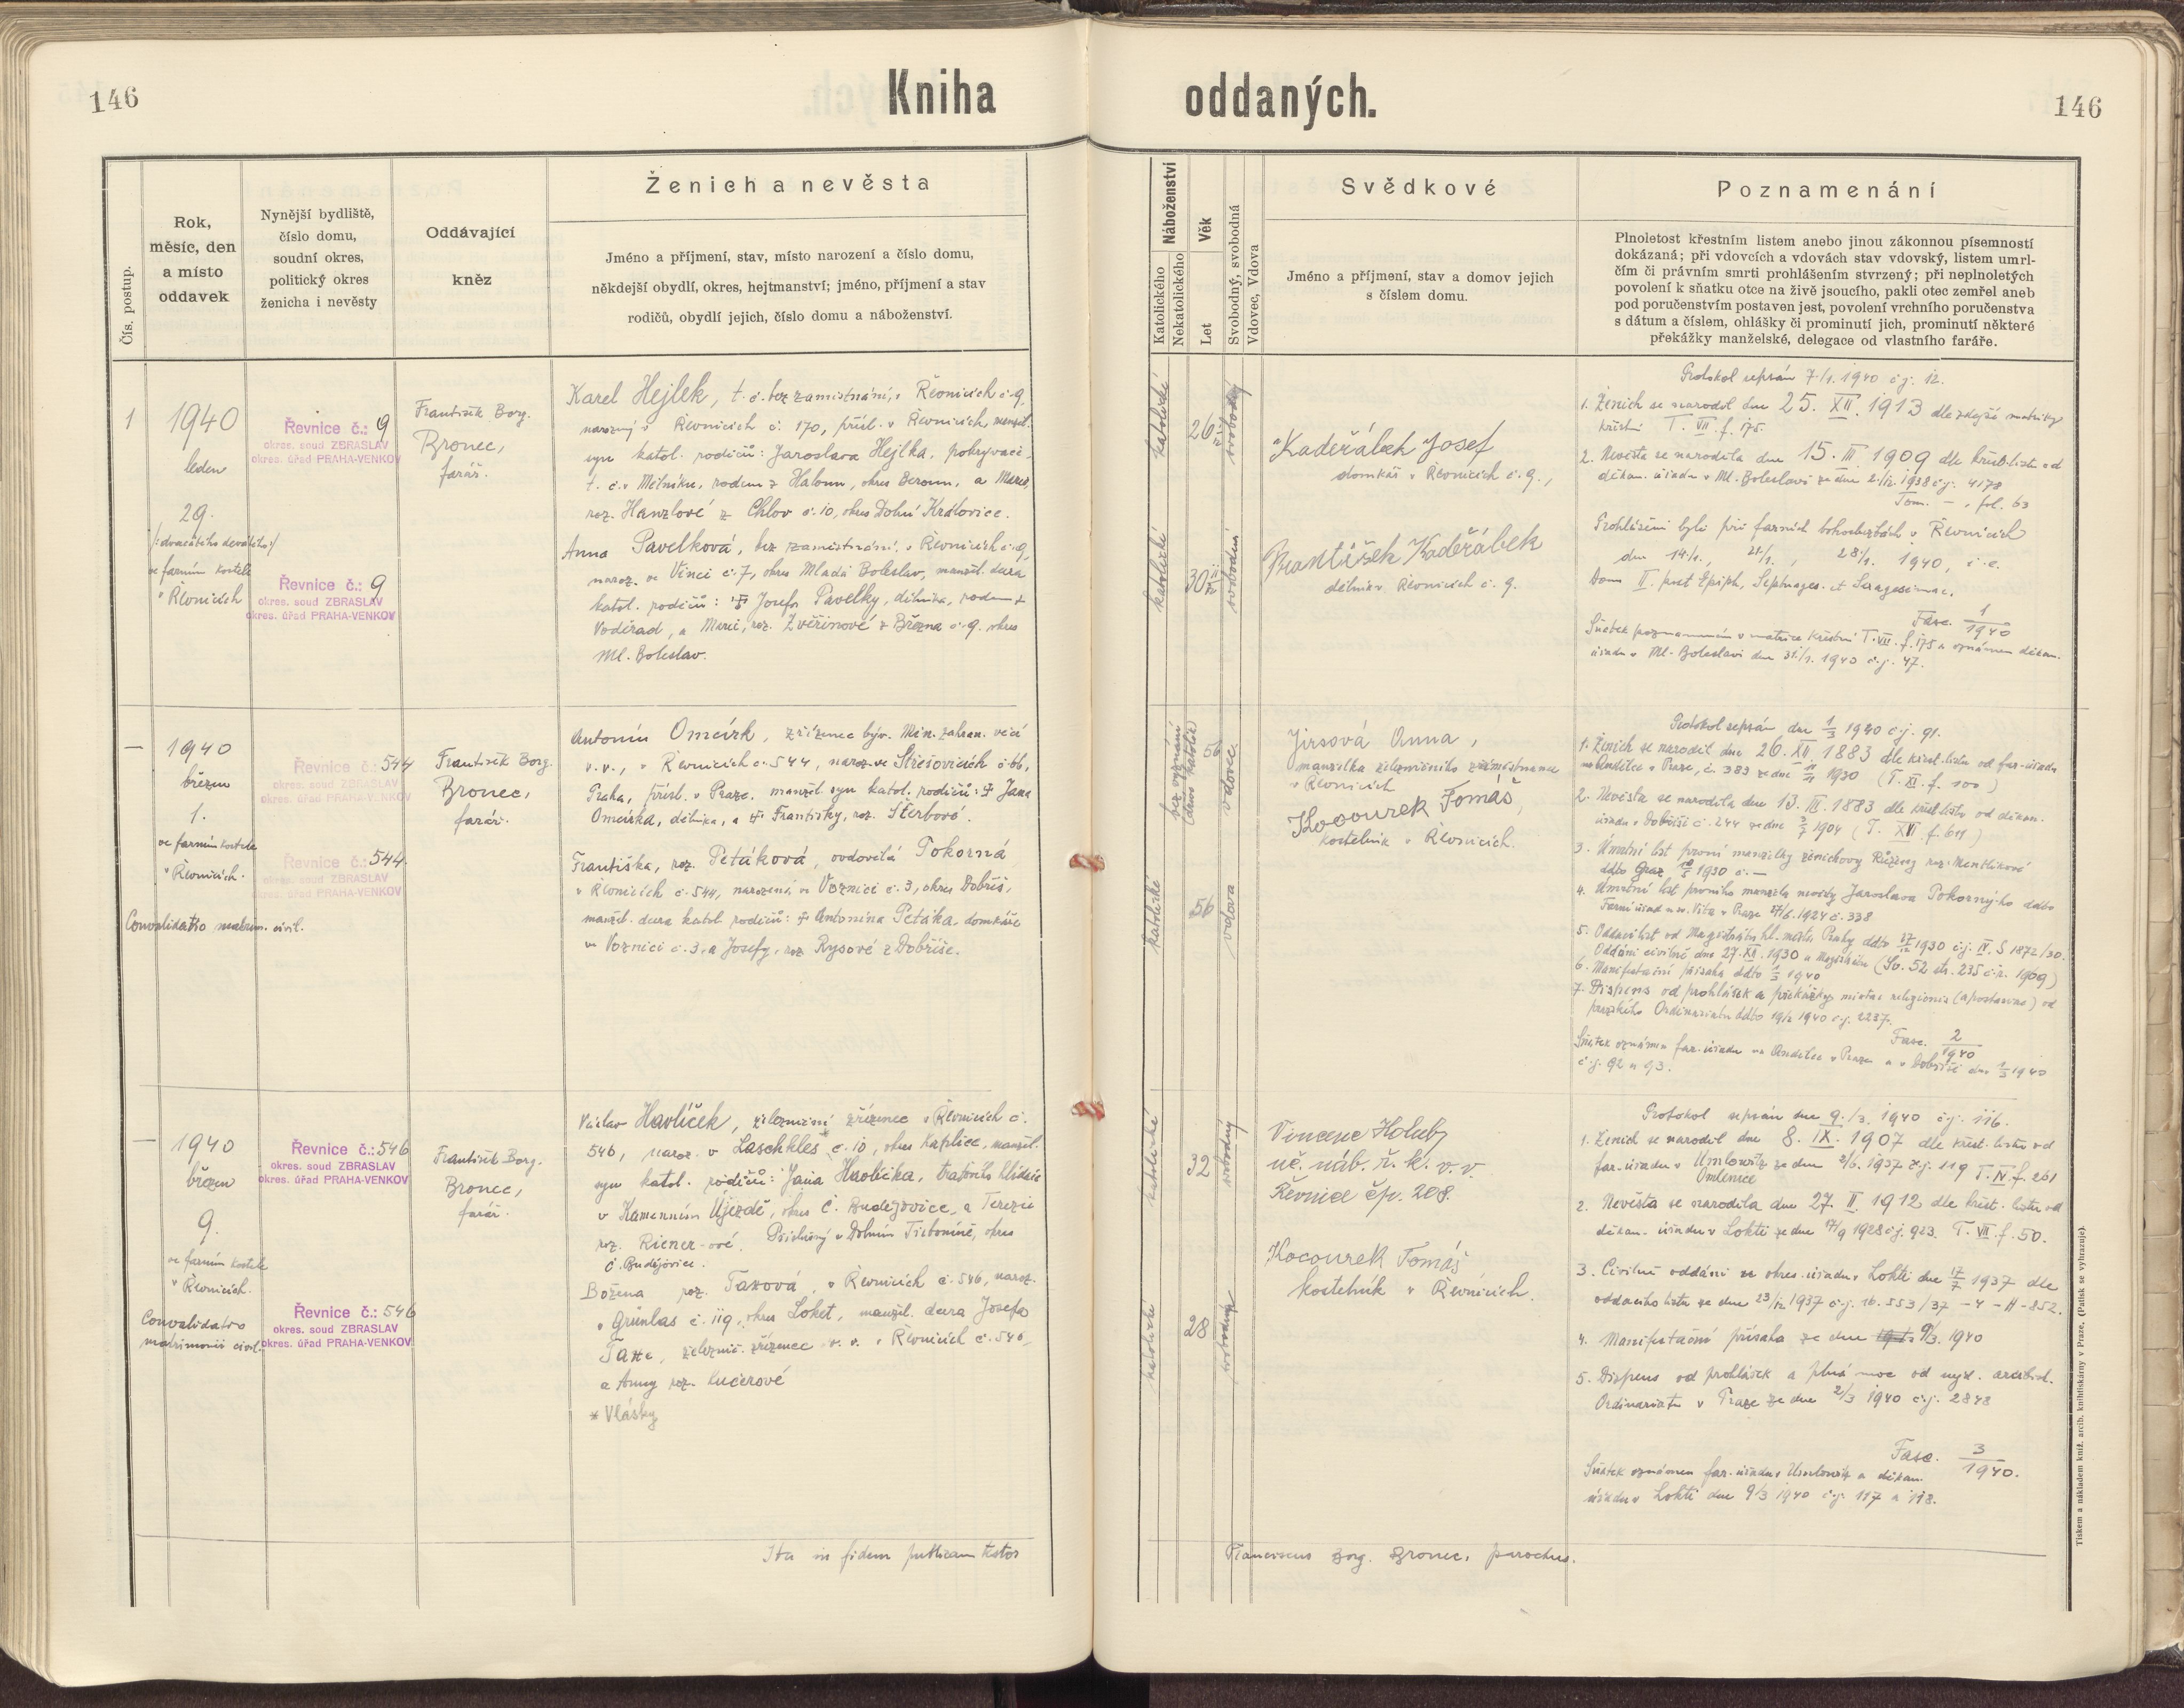 146
Kniha
oddaných.
146
Čís. postup.
Rok,
měsíc, den
a místo
oddavek
Nynější bydliště,
číslo domu,
soudní okres,
politický okres
ženicha i nevěsty
Oddávající
kněz
Ženich a nevěsta
Jméno a příjmení, stav, místo narození a číslo domu,
někdejší obydlí, okres, hejtmanství; jméno, příjmení a stav
rodičů, obydlí jejich, číslo domu a náboženství.
Náboženství
Katolického
Nekatolického
Věk
Let
Svobodný, svobodná
Vdovec, Vdova
Svědkové
Jméno a příjmení, stav a domov jejich
s číslem domu.
Poznamenání
Plnoletost křestním listem anebo jinou zákonnou písemností
dokázaná; při vdovcích a vdovách stav vdovský, listem umrl-
čím či právním smrti prohlášením stvrzený; při neplnoletých
povolení k sňatku otce na živě jsoucího, pakli otec zemřel aneb
pod poručenstvím postaven jest, povolení vrchního poručenstva
s dátum a číslem, ohlášky či prominutí jich, prominutí některé
překážky manželské, delegace od vlastního faráře.
1
1940
leden
29.
/:dvacátého devátého:/
ve farním kostele
v Řevnicích
Řevnice č.: 9
okres. soud ZBRASLAV
okres. úřad PRAHA-VENKOV
Řevnice č.: 9
okres. soud ZBRASLAV
okres. úřad PRAHA-VENKOV
František Borg.
Bronec,
farář.
Karel Hejlek, t. č. bez zaměstnání, v Řevnicích č. 9,
narozený v Řevnicích č. 170, přísl. v Řevnicích, manžel.
syn katol. rodičů: Jaroslava Hejlka, pokrývače,
t. č. v Mělníku, rodem z Haloun, okres Beroun, a Marie,
roz. Hanzlové z Chlov č. 10, okres Dolní Kralovice.
Anna Pavelková, bez zaměstnání, v Řevnicích č. 9,
naroz. ve Vinci č. 7, okres Mladá Boleslav, manžel. dcera
katol. rodičů: Josefa Pavelky, dělníka, rodem z
Voděrad, a Marie, roz. Zvěřinové z Března č. 9. okres
Ml. Boleslav.
katolické
26
svobodný
katolické
30 11/12
svobodná
Kadeřábek Josef
domkář v Řevnicích č. 9.,
František Kadeřábek
dělník v Řevnicích č. 9.
Protokol sepsán 7./1. 1940 č.j. 12.
1. Ženich se narodil dne 25. XII. 1913 dle zdejší matriky
křestní T. VII. f. 175.
2. Nevěsta se narodila dne 15. III. 1909 dle křest. listu od
děkan. úřadu v Ml. Boleslavi ze dne 2./12. 1938 č.j. 4178
Tom. – , fol. 63
Prohlášeni byli při farních bohoslužbách v Řevnicích
dne 14./1., 21./1., 28./1. 1940, i. e.
Dom II. post Epiph, Septuages. et Sexagesimae.
Fasc. 1/1940
Sňatek poznamenán v matrice křestní T. VII. f. 175 a oznámen děkan.
úřadu v Ml. Boleslavi dne 31./1. 1940 č.j. 47.
—
1940
březen
1.
ve farním kostele
v Řevnicích.
Convalidatio matrim. civil.
Řevnice č.: 544
okres. soud ZBRASLAV
okres. úřad PRAHA-VENKOV
Řevnice č.: 544.
okres. soud ZBRASLAV
okres. úřad PRAHA-VENKOV
František Borg.
Bronec,
farář.
Antonín Omcírk, zřízenec býv. Min. zahran. věcí
v. v., v Řevnicích č. 544, naroz. ve Střešovicích č. 66,
Praha, přísl. v Praze. manžel. syn katol. rodičů: Jana
Omcírka, dělníka, a Františky, roz. Šterbové.
Františka, roz. Petáková, ovdovělá Pokorná
v Řevnicích č. 544, narozená ve Voznici č. 3, okres Dobříš,
manžel. dcera katol. rodičů: Antonína Petáka, domkáře
ve Voznici č. 3, a Josefy, roz. Rysové z Dobříše.
bez vyznání
56
vdovec
katolické
56
vdova
Jirsová Anna,
manželka železničního zaměstnance
v Řevnicích
Kocourek Tomáš,
kostelník v Řevnicích.
Protokol sepsán dne 1/3 1940 č.j. 91.
1. Ženich se narodil dne 26. XII 1883 dle křest. listu od far. úřadu
na Andělce v Praze, č. 383 ze dne 1930 (T. XI. f. 100)
2. Nevěsta se narodila dne 13. III. 1883 dle křest. listu od děkan.
úřadu v Dobříši č. 244 ze dne 1904 (T. XVI. f. 611)
3. Úmrtní list první manželky ženichovy Růženy roz. Mentlíkové
ddto Graz 1930 č. —
4. Úmrtní list prvního manžela nevěsty Jaroslava Pokorného ddto
Farní úřad u sv. Víta v Praze 17/6. 1924 č. 338
5. Oddací list od Magistrátu hl. města Prahy ddto 27/12 1930 č.j. IV. S 1872/30.
Oddáni civilně dne 27. XII. 1930 u Magistrátu (Sv. 52 str. 235 č. ř. 1909)
6. Manifestační přísaha ddto 1/3 1940
7. Dispens od prohlášek a překážky mixtae religionis (apostasiae) od
pražského Ordinariatu ddto 19/2 1940 č.j. 2237.
Fasc. 2/1940
Sňatek oznámen far. úřadu na Andělce v Praze a v Dobříši dne 1/3 1940
č.j. 92 a 93.
—
1940
březen
9.
ve farním kostele
v Řevnicích.
Convalidatio
matrimonii civil.
Řevnice č.: 546
okres. soud ZBRASLAV
okres. úřad PRAHA-VENKOV
Řevnice č.: 546
okres. soud ZBRASLAV
okres. úřad PRAHA-VENKOV
František Borg.
Bronec,
farář.
Václav Havlíček, železniční zřízenec v Řevnicích č.
546, naroz. v Laschkles* č. 10, okres Kaplice, manžel.
syn katol. rodičů: Jana Havlíčka, traťového hlídače
v Kamenném Újezdě, okres Č. Budějovice, a Terezie
roz. Riener-ové. Příslušný v Dolním Třeboníně, okres
Č. Budějovice.
Božena roz. Taxová, v Řevnicích č. 546, naroz.
v Grünlas č. 119, okres Loket, manžel. dcera Josefa
Taxe, železnič. zřízence v. v. v Řevnicích č. 546,
a Anny roz. Kučerové
* Vlásky
katolické
32
svobodný
katolické
28
svobodná
Vincenc Holub,
uč. náb. ř. k. v. v.
Řevnice čp. 208.
Kocourek Tomáš
kostelník v Řevnicích.
Protokol sepsán dne 9./3. 1940 č.j. 116.
1. Ženich se narodil dne 8. IX. 1907 dle křest. listu od
far. úřadu v Umlowitz ze dne 2/6. 1937 č.j. 119 T. IV. f. 261
Omlenice
2. Nevěsta se narodila dne 27. II. 1912 dle křest. listu od
děkan. úřadu v Lokti ze dne 17/9 1928 č.j. 923. T. VII. f. 50.
3. Civilně oddáni u okres. úřadu v Lokti dne 17/7 1937 dle
oddacího listu ze dne 23/12 1937 č.j. 16.553/37 – 4 – H – 252.
4. Manifestační přísaha ze dne 9/3. 1940
5. Dispens od prohlášek a plná moc od nejd. arcibisk.
Ordinariatu v Praze ze dne 2/3 1940 č.j. 2848
Fasc. 3/1940.
Sňatek oznámen far. úřadu v Umlowitz a děkan.
úřadu v Lokti dne 9/3 1940 č.j. 117 a 118.
Ita in fidem publicam testor
Franciscus Borg. Bronec, parochus.
Tiskem a nákladem kníž. arcib. knihtiskárny v Praze. (Patisk se vyhrazuje).